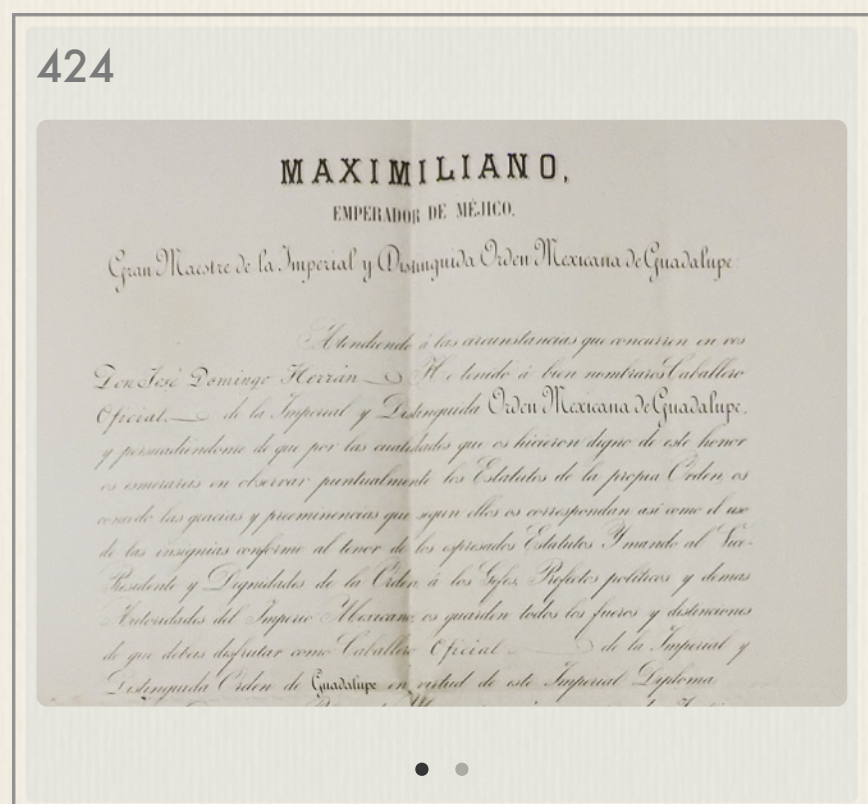 424
MAXIMILIANO,
EMPERADOR DE MÉJICO.
Gran Maestre de la Imperial y Distinguida Orden Mexicana de Guadalupe
Atendiendo á las circunstancias que concurren en vos
Don José Domingo Herrán He tenido á bien nombraros Caballero
Oficial de la Imperial y Distinguida Orden Mexicana de Guadalupe,
y persuadiéndome de que por las cualidades que os hicieron digno de este honor
os esmerareis en observar puntualmente los Estatutos de la propia Orden, os
concedo las gracias y preeminencias que segun ellos os correspondan asi como el uso
de las insignias conforme al tenor de los espresados Estatutos Y mando al Vice-
Presidente y Dignidades de la Orden, á los Gefes, Prefectos políticos y demas
Autoridades del Imperio Mexicano, os guarden todos los fueros y distinciones
de que debeis disfrutar como Caballero Oficial de la Imperial y
Distinguida Orden de Guadalupe en virtud de este Imperial Diploma